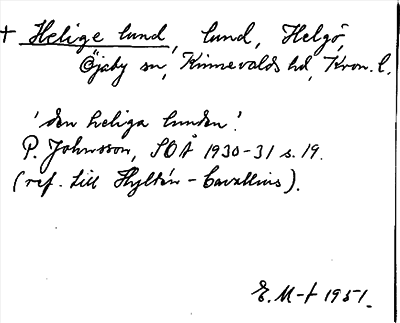 + Helige lund, lund, Helgö,
Öjaby sn, Kinnevalds hd, Kron. l.
'den heliga lunden'.
P. Johnsson, SOÅ 1930-31 s. 19.
(ref. till Hyltén-Cavallius).
E. M-t 1951.